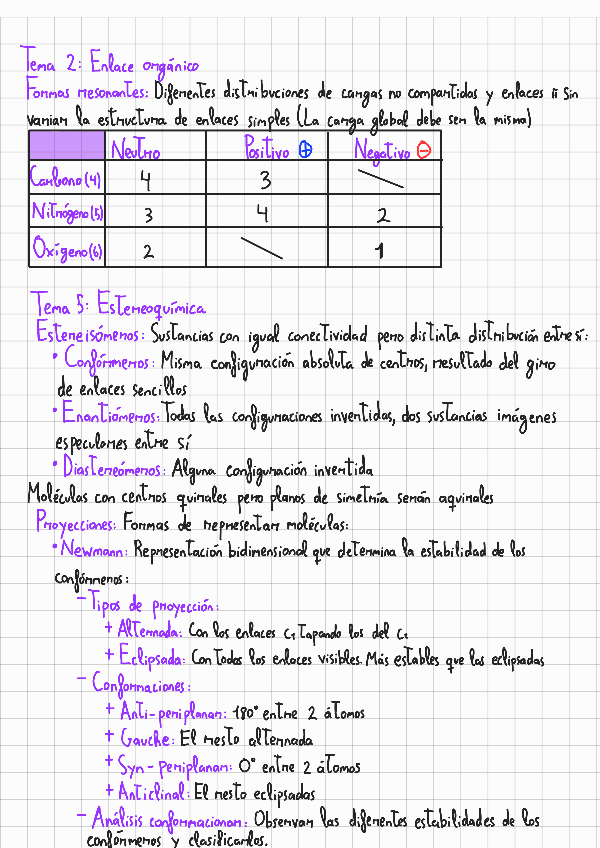 Tema 2: Enlace orgánico
Formas resonantes: Diferentes distribuciones de cargas no compartidas y enlaces π sin
variar la estructura de enlaces simples (La carga global debe ser la misma)
Neutro Positivo ⊕ Negativo ⊖
Carbono (4) 4 3
Nitrógeno (5) 3 4 2
Oxígeno (6) 2 1
Tema 5: Estereoquímica
Estereisómeros: Sustancias con igual conectividad pero distinta distribución entre sí:
• Confórmeros: Misma configuración absoluta de centros, resultado del giro
de enlaces sencillos
• Enantiómeros: Todas las configuraciones invertidas, dos sustancias imágenes
especulares entre sí
• Diastereómeros: Alguna configuración invertida
Moléculas con centros quirales pero planos de simetría serán aquirales
Proyecciones: Formas de representar moléculas:
• Newmann: Representación bidimensional que determina la estabilidad de los
confórmeros:
- Tipos de proyección:
+ Alternada: Con los enlaces C₁ tapando los del C₂
+ Eclipsada: Con todos los enlaces visibles. Más estables que las eclipsadas
- Conformaciones:
+ Anti-periplanar: 180° entre 2 átomos
+ Gauche: El resto alternada
+ Syn-periplanar: 0° entre 2 átomos
+ Anticlinal: El resto eclipsadas
- Análisis conformacionar: Observar las diferentes estabilidades de los
confórmeros y clasificarlos.